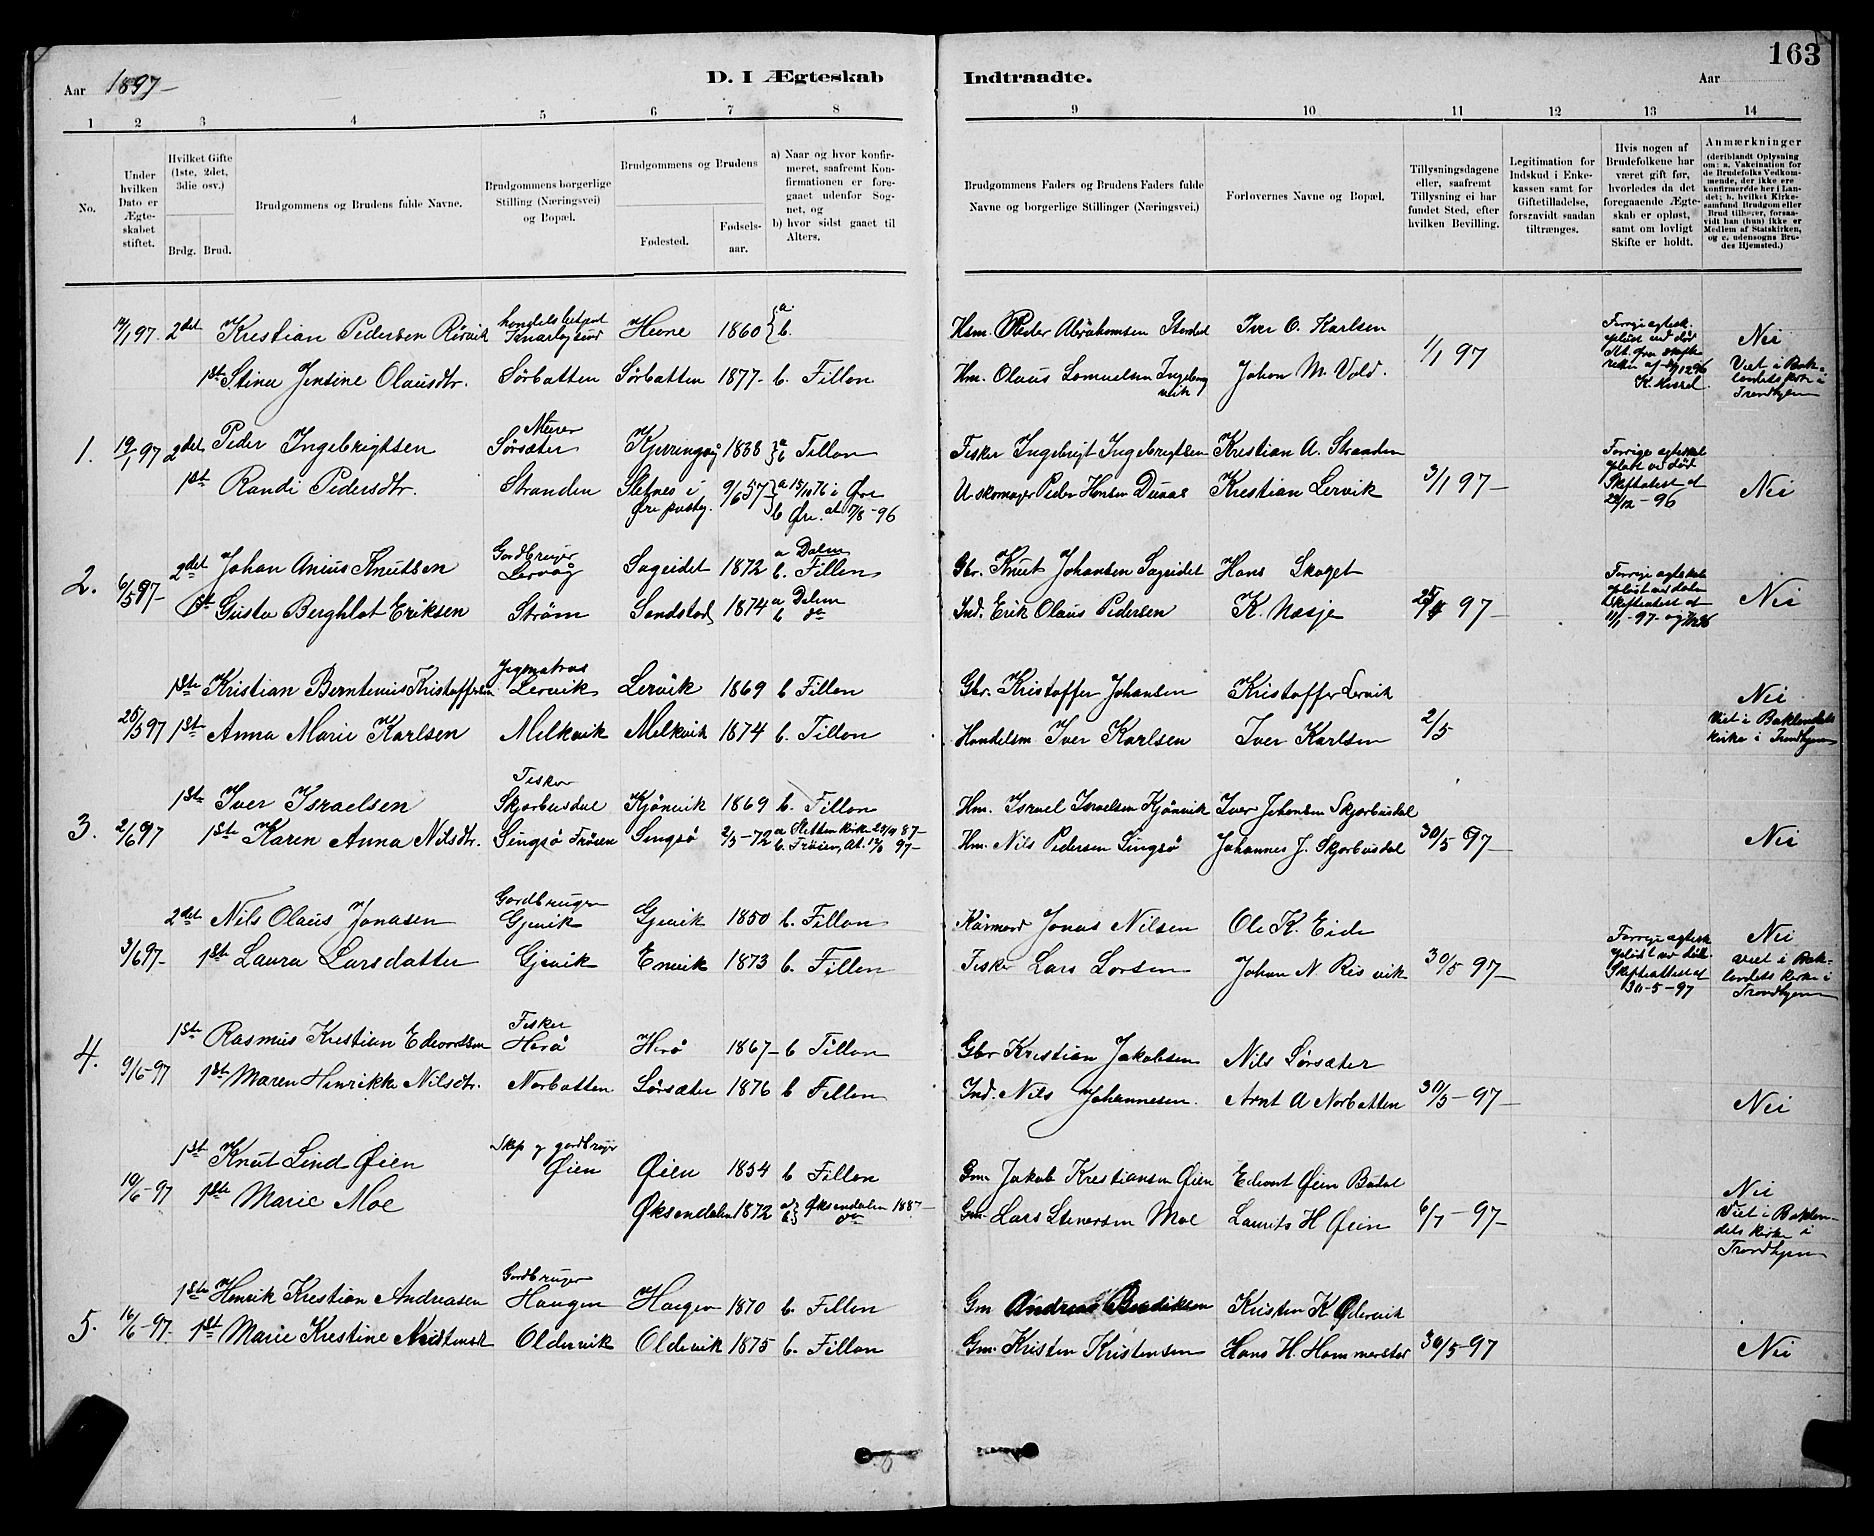 163
Aar 1897- D. I Ægteskab Indtraadte. Aar
1 2 3 4 5 6 7 8 9 10 11 12 13 14
No.
Under hvilken Dato er Ægteskabet stiftet.
Hvilket Gifte (1ste, 2det, 3die osv.)
Brdg. Brud.
Brudgommens og Brudens fulde Navne.
Brudgommens borgerlige Stilling (Næringsvei) og Bopæl.
Brudgommens og Brudens
Fødested. Fødselsaar.
a) Naar og hvor konfirmeret, saafremt Konfirmationen er foregaaet udenfor Sognet, og
b) hvor sidst gaaet til Alters.
Brudgommens Faders og Brudens Faders fulde Navne og borgerlige Stillinger (Næringsvei.)
Forlovernes Navne og Bopæl.
Tillysningsdagene eller, saafremt Tillysning ei har fundet Sted, efter hvilken Bevilling.
Legitimation for Indskud i Enkekassen samt for Giftetilladelse, forsaavidt saadan tiltrænges.
Hvis nogen af Brudefolkene har været gift før, hvorledes da det foregaaende Ægteskab er opløst, samt om lovligt Skifte er holdt.
Anmærkninger
(deriblandt Oplysning om: a. Vakcination for de Brudefolks Vedkommende, der ikke ere konfirmerede her i Landet; b. hvilket Kirkesamfund Brudgom eller Brud tilhører, forsaavidt han (hun) ikke er Medlem af Statskirken, og c. udensogns Brudes Hjemsted.)
14/1 97. 2det Kristian Pedersen Rörvik Hevne 1860 a. b. Hsm. Peder Abrahamsen Iver O. Karlsen Nei
1ste Stina Jentine Olausdtr. Sörbatten Sörbatten 1877- b. Fillan Hm. Olaus Samuelsen Johan M. Vold. 1/1 97 Viet i Baklandets kirke i Trondhjem
1. 19/1 97 2det Peder Ingebrigtsen Sørsæter 1838 a b Fillan Fisker Ingebrigt Ingebrigtsen Kristian A. Stranden
1ste Randi Pedersdtr. Stranden i Øre 9/6 57 a i Øre b Øre. Peder Hansen Kristian Lervik 3/1 97- 22/12-96 Nei
2. 6/5 97- 2det Johan Anius Knutsen Gardbruger Lervåg Sageidet 1872 a Dolm b. Fillan Gbr. Knut Johansen Sageidet Hans Skaget
1ste Gusta Berghlot Eriksen Strøm Sandstad 1874 a Dolm b do Ind. Erik Olaus Pedersen K. Næsje 25/4 97- Nei
1ste Kristian Berntinius Kristoffersen Lervik Lervik 1869 b Fillan Gbr. Kristoffer Johansen Kristoffer Lervik Nei
25/5 97 1ste Anna Marie Karlsen Melkvik Melkvik 1874 b. Fillan Handelsm Iver Karlsen Iver Karlsen 2/5 Viet i Baklandets kirke i Trondhjem
3. 2/6 97 1ste Iver Israelsen Fisker Skjærbusdal Kjönvik 1869 b. Fillan Hm. Israel Israelsen Kjönvik Iver Johansen Skjærbusdal
1ste Karen Anna Nilsdtr. Singsö Fröien Singsö 2/5-72 a Sletten kirke b. Fröien Hm. Nils Pedersen Singsö Johannes J. Skjærbusdal 30/5 97- Nei
2det Nils Olaus Jonasen Gardbruger Gjevik Gjevik 1850 b. Fillan Kårmand Jonas Nilsen Ole K. Eide Nei
3/6 97- 1ste Laura Larsdatter Gjevik Envik 1873 b. Fillan Fisker Lars Larsen Johan N. Risvik 30/5 97- Skifteattest af 30-5-97 Viet i Baklandets kirke i Trondhjem
4. 9/6-97 1ste Rasmus Kristian Edvardsen Fisker Herö Herö 1867- b Fillan Gbr Kristian Jakobsen Nils Sørsæter
1ste Maren Henrikke Nilsdtr. Norbotten Sörsæter 1876 b Fillan Ind. Nils Johannesen. Arnt A Norbotten 30/5-97- Nei
10/6-97 1ste Knut Lind Øien Skp og gardbruger Øien Øien 1854 b Fillan Gm. Jakob Kristiansen Øien Edvart Øien Nei
1ste Marie Moe Øksendalen 1872 a b Øksendalen 1887- do Gm. Lars Stenersen Moe Laurits H Øien 6/7-97- Viet i Baklandets kirke i Trondhjem
5. 16/6-97. 1ste Henrik Kristian Andreasen Gardbruger Haugen Haugen 1870 b. Fillan Gm Andreas Kristen K Oldervik
1ste Marie Kristine Kristensdt Oldervik Oldervik 1875 b. Fillan Gm. Kristen Kristensen Hans H. Hammerstad 30/5-97 Nei